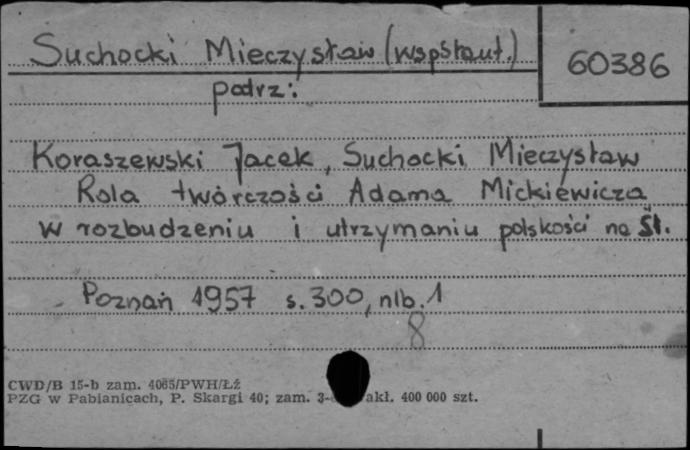 Suchocki Mieczysław (współaut.)
60386
patrz:
Koraszewski Jacek, Suchocki Mieczysław
Rola twórczości Adama Mickiewicza
w rozbudzeniu i utrzymaniu polskości na Śl.
Poznań 1957 s. 300, nlb. 1
8
CWD/B 15-b zam. 4065/PWH/Łż
PZG w Pabianicach, P. Skargi 40; zam. akł. 400 000 szt.